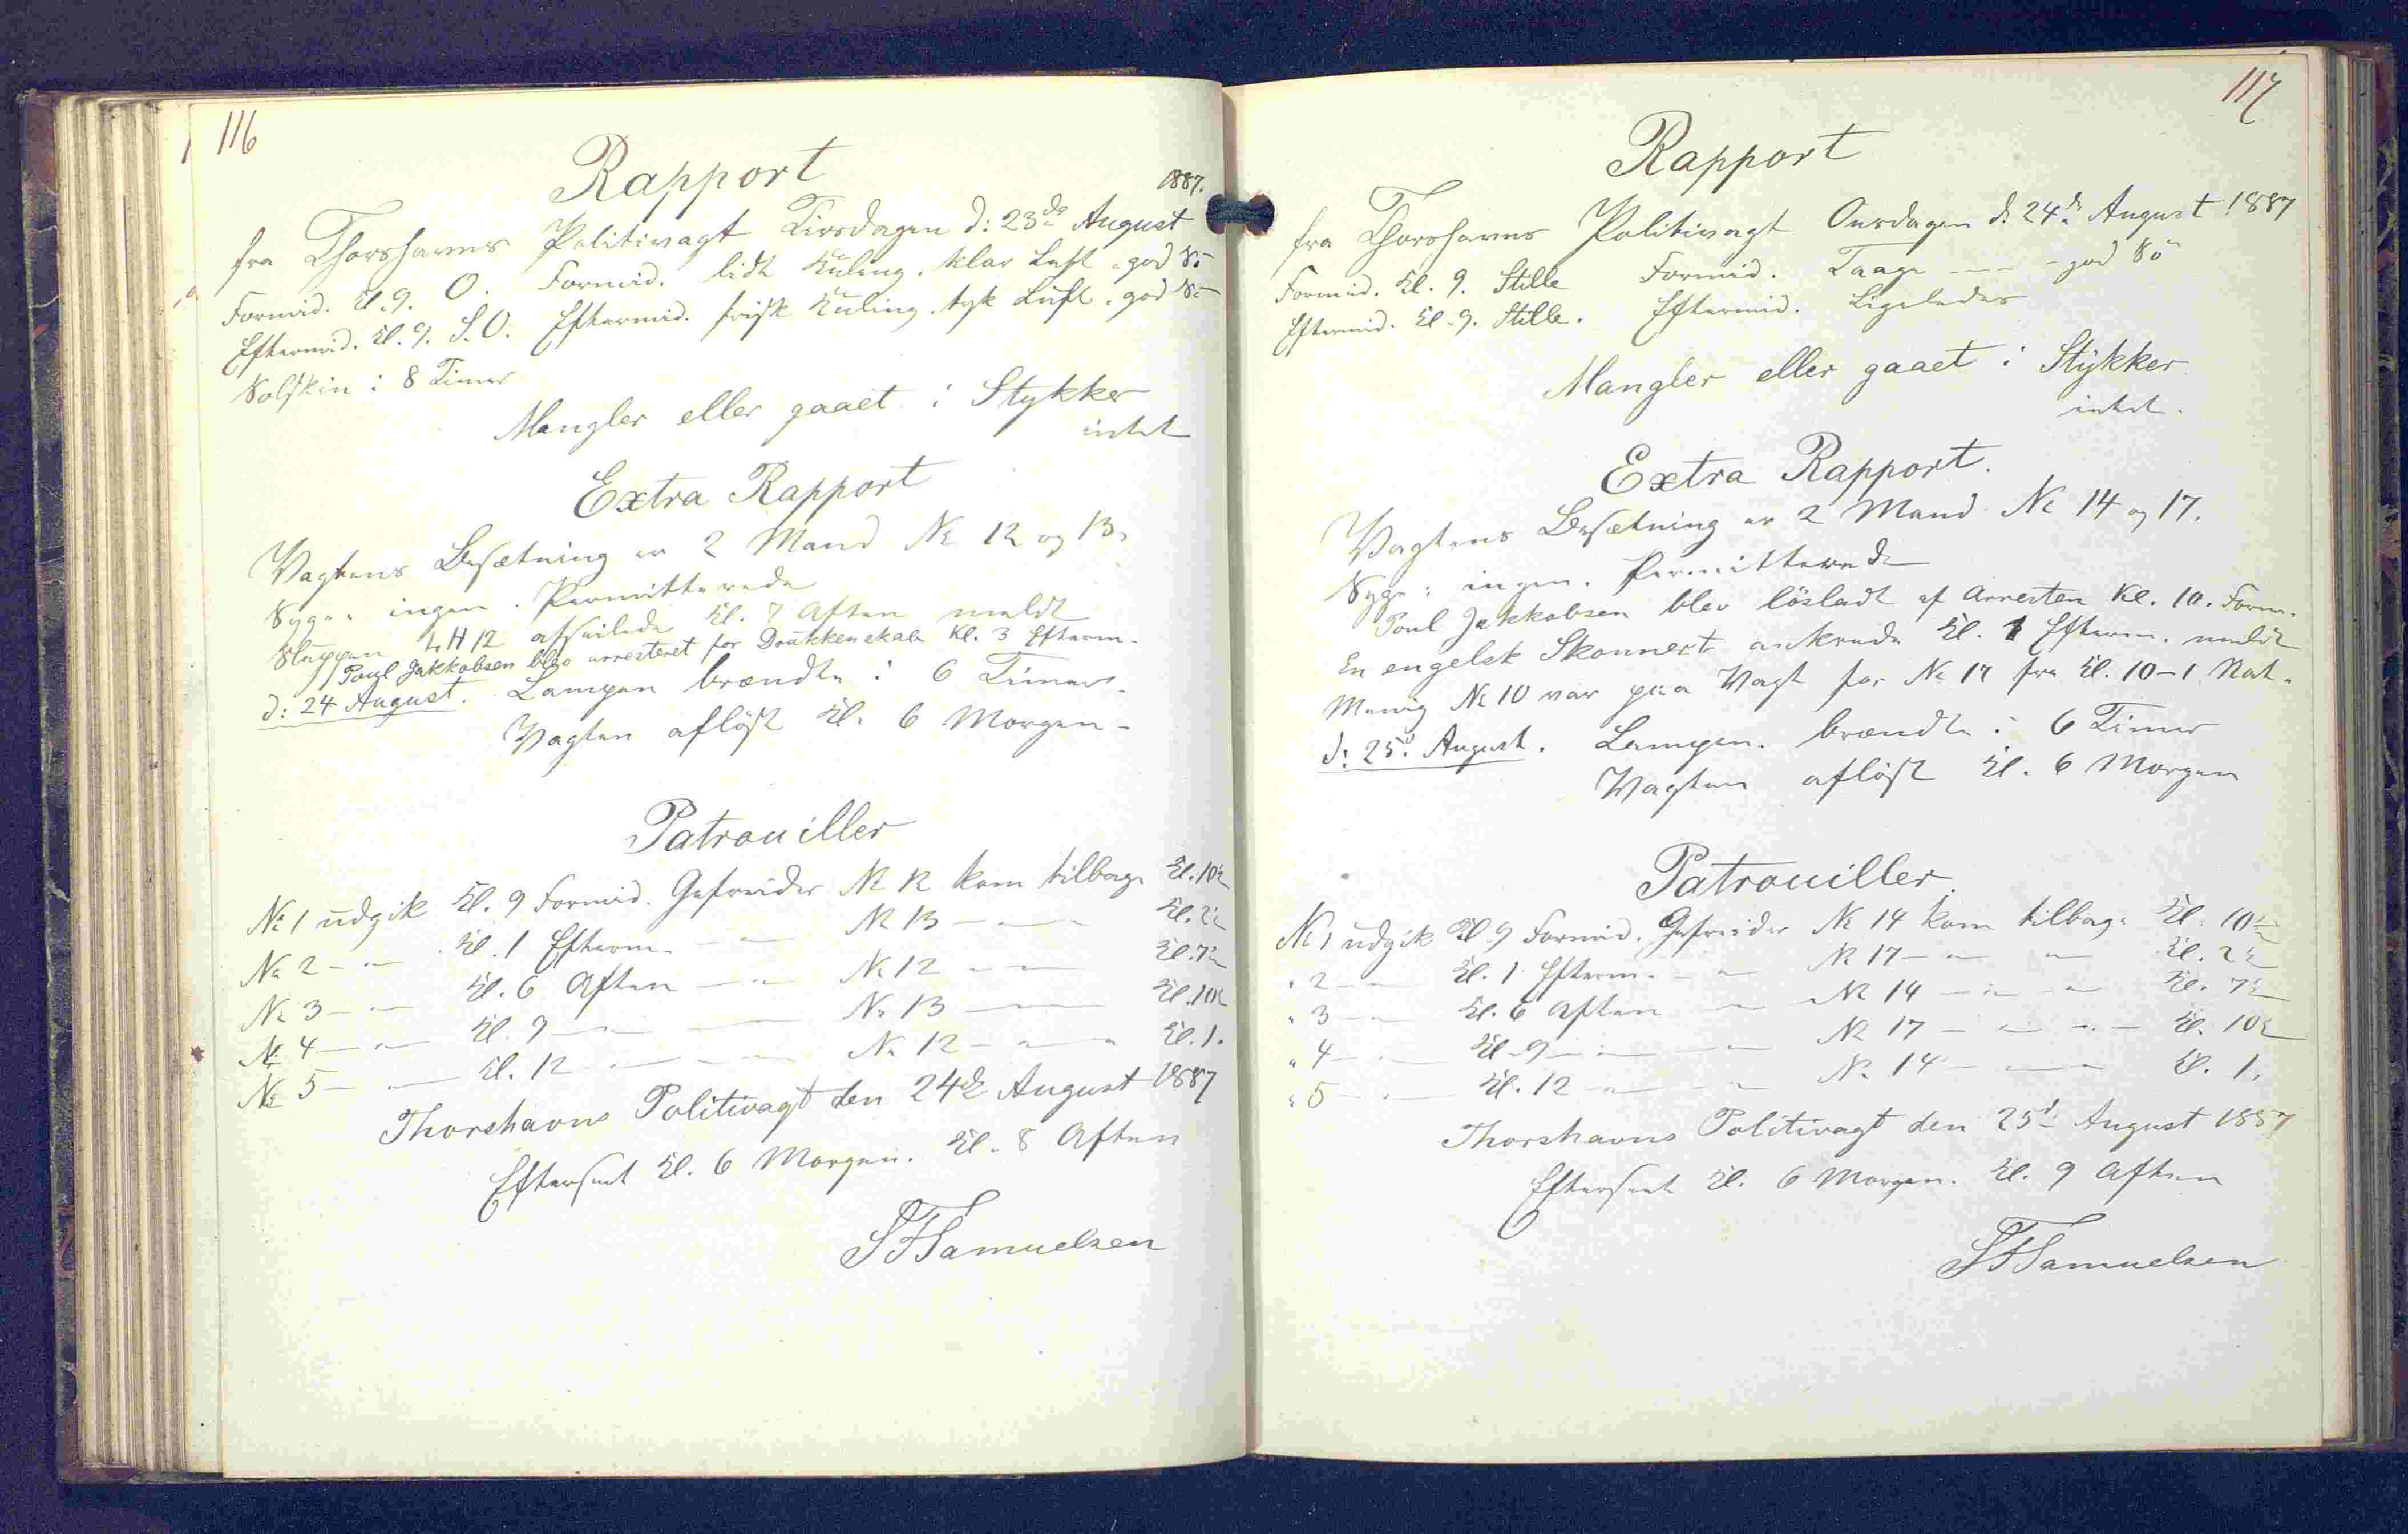 116
Rapport
1887.
fra Thorshavns Politivagt Tirsdagen d: 23de August
Formid. Kl. 9. O. Formid. lidt Kuling. klar Luft. god Sö
Eftermid. Kl. 9. S.O. Eftermid. frisk Kuling. tyk Luft. god Sö
Solskin i 8 Timer
Mangler eller gaaet i Stykker
intet
Extra Rapport
Vagtens Besætning er 2 Mand No 12 og 13.
Syge: ingen. Permitterede
Sluppen LH 12 afseilede Kl. 7 Aften meldt
Poul Jakkobsen blev arresteret for Drukkenskab Kl. 3 Efterm.
d: 24 August. Lampen brændte i 6 Timer.
Vagten aflöst Kl. 6 Morgen
Patrouiller
No 1 udgik Kl. 9 Formid. Gefreider No 12 kom tilbage Kl. 10½
No 2 — — Kl. 1 Efterm. — — No 13 — — Kl. 2½
No 3 — — Kl. 6 Aften — — No 12 — — Kl. 7½
No 4 — — Kl. 9 — — No 13 — — Kl. 10½
No 5 — — Kl. 12 — — — No 12 — — Kl. 1.
Thorshavns Politivagt den 24de August 1887
Efterseet Kl. 6 Morgen. Kl. 8 Aften
Samuelsen
117
Rapport
fra Thorshavns Politivagt Onsdagen d. 24de August 1887
Formid. Kl. 9. Stille Formid. Taage — — god Sö
Eftermid. Kl. 9. Stille. Eftermid. Ligeledes
Mangler eller gaaet i Stykker
intet.
Extra Rapport.
Vagtens Besætning er 2 Mand No 14 og 17.
Syge: ingen. Permitterede
Poul Jakkobsen blev lösladt af Arresten Kl. 10. Form.
En engelsk Skonnert ankrede Kl. 1 Efterm. meldt
Menig No 10 var paa Vagt for No 17 fra Kl. 10-1 Nat.
d: 25d August. Lampen brændte i 6 Timer
Vagten aflöst Kl. 6 Morgen
Patrouiller.
No 1 udgik Kl. 9 Formid. Gefreider No 14 kom tilbage Kl. 10½
" 2 — — Kl. 1 Efterm. — — No 17 — — Kl. 2½
" 3 — — Kl. 6 Aften — — No 14 — — — Kl. 7½
" 4 — — Kl. 9 — — — No 17 — — — Kl. 10½
" 5 — — Kl. 12 — — No 14 — — Kl. 1.
Thorshavns Politivagt den 25d August 1887
Efterseet Kl. 6 Morgen. Kl. 9 Aften
Samuelsen